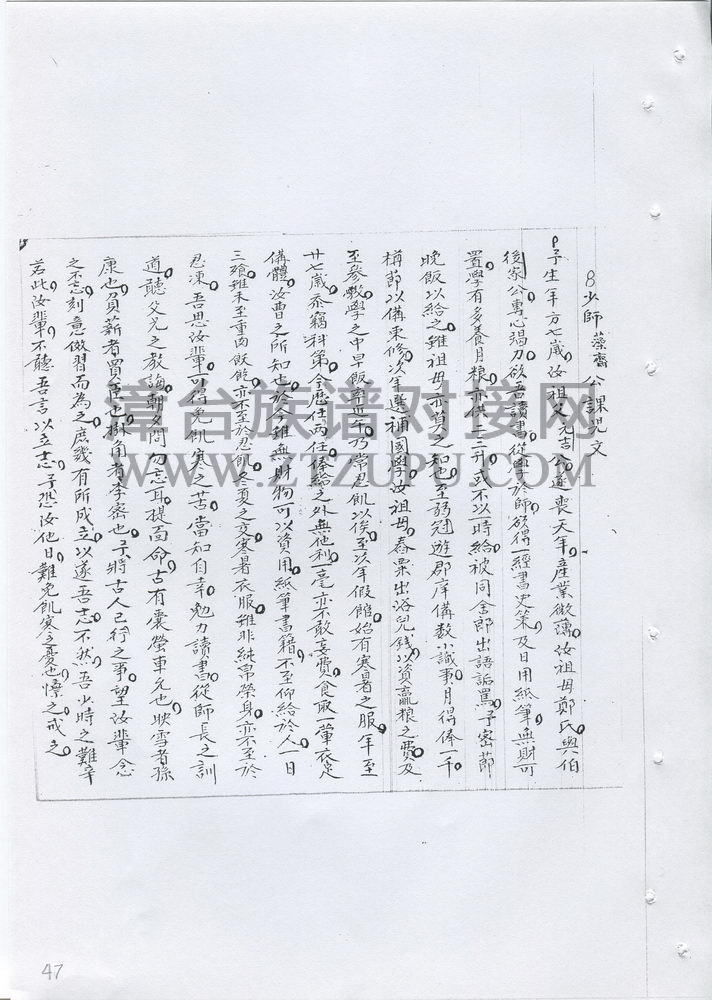 8少師藻齋公課児文
予生年方七歲。汝祖父元吉公遂喪天年。產業微薄。汝祖母鄭氏與伯
後家公專心竭力欲吾讀書從學於師欲得一經書史策及日用紙筆無財可
置。學有多養月粮亦供二三升或不以時給被同舍郎出語詬罵。予密節
晚飯以給之。雖祖母亦莫之知也。至弱冠遊郡庠俻数小識事月得俸一千。
樽節以俻束修。次年選補國學。汝祖母舂粟出浴兒錢以資贏粮之費。及
至參教學之中早飯率近午乃常忍飢以俟至次年假館始有寒暑之服。年至
廿七歲忝竊科第。今歷任两任俸給之外無他利一毫亦不敢妄費食取一葷衣足
俻體。汝曹之所知也。於今雖無財物可以資用紙筆書籍。不至仰給於人。一日
三飱雖未至重肉飫飽亦不至於忍飢冬夏之交寒暑衣服雖非純帛榮身亦不至於
忍凍。吾思汝輩可得免飢寒之苦。當知自幸。勉力讀書。從師長之訓
道聽父兄之教誨。朝夕問勿忘耳提面命古有囊螢車允也。映雪者孫
康也。負薪者買臣也。掛角者李密也。予將古人已行之事。望汝輩念
之不忘。刻意倣習而為之。庶幾有所成立。以遂吾志。不然吾少時之難辛
若此。汝輩不聽吾言以立志。予恐汝他日難免飢寒之憂也。懔之戒之。
臺台族谱对接网
WWW.ZTZUPU.COM
47